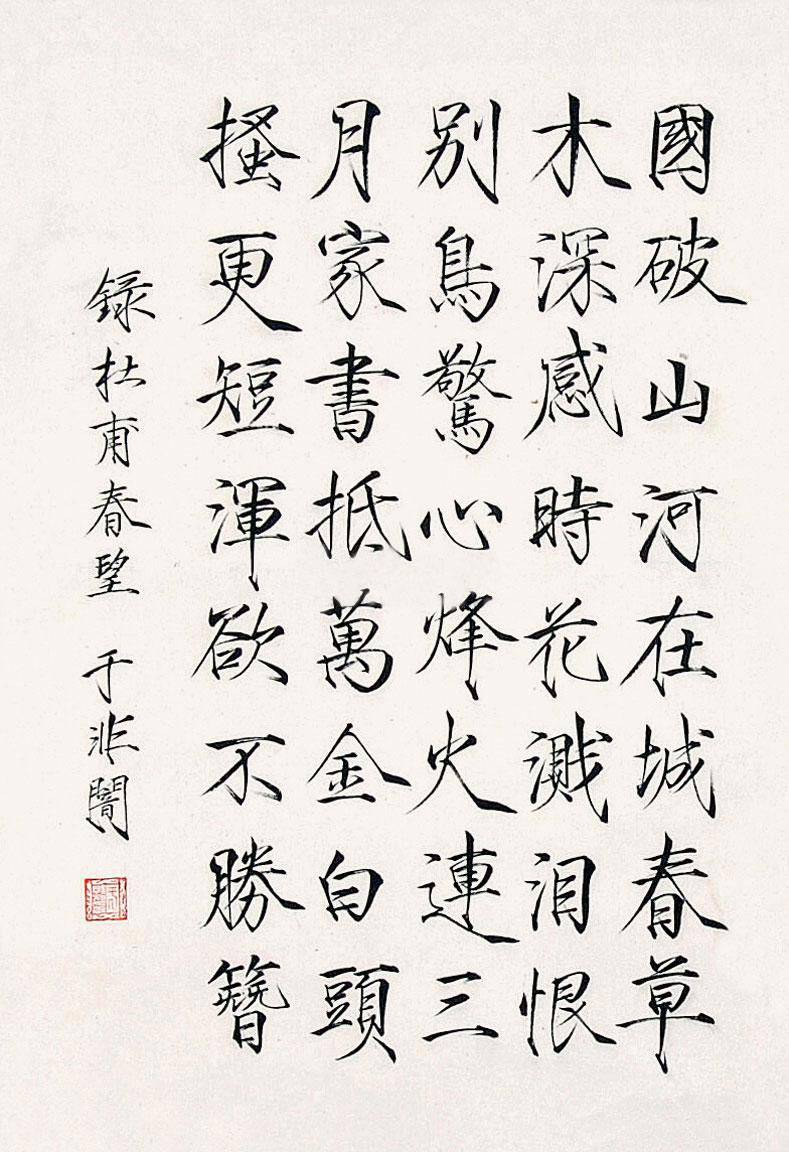 國破山河在城春草
木深感時花濺泪恨
别鳥驚心烽火連三
月家書抵萬金白頭
搔更短渾欲不勝簪
録杜甫春望 于非闇